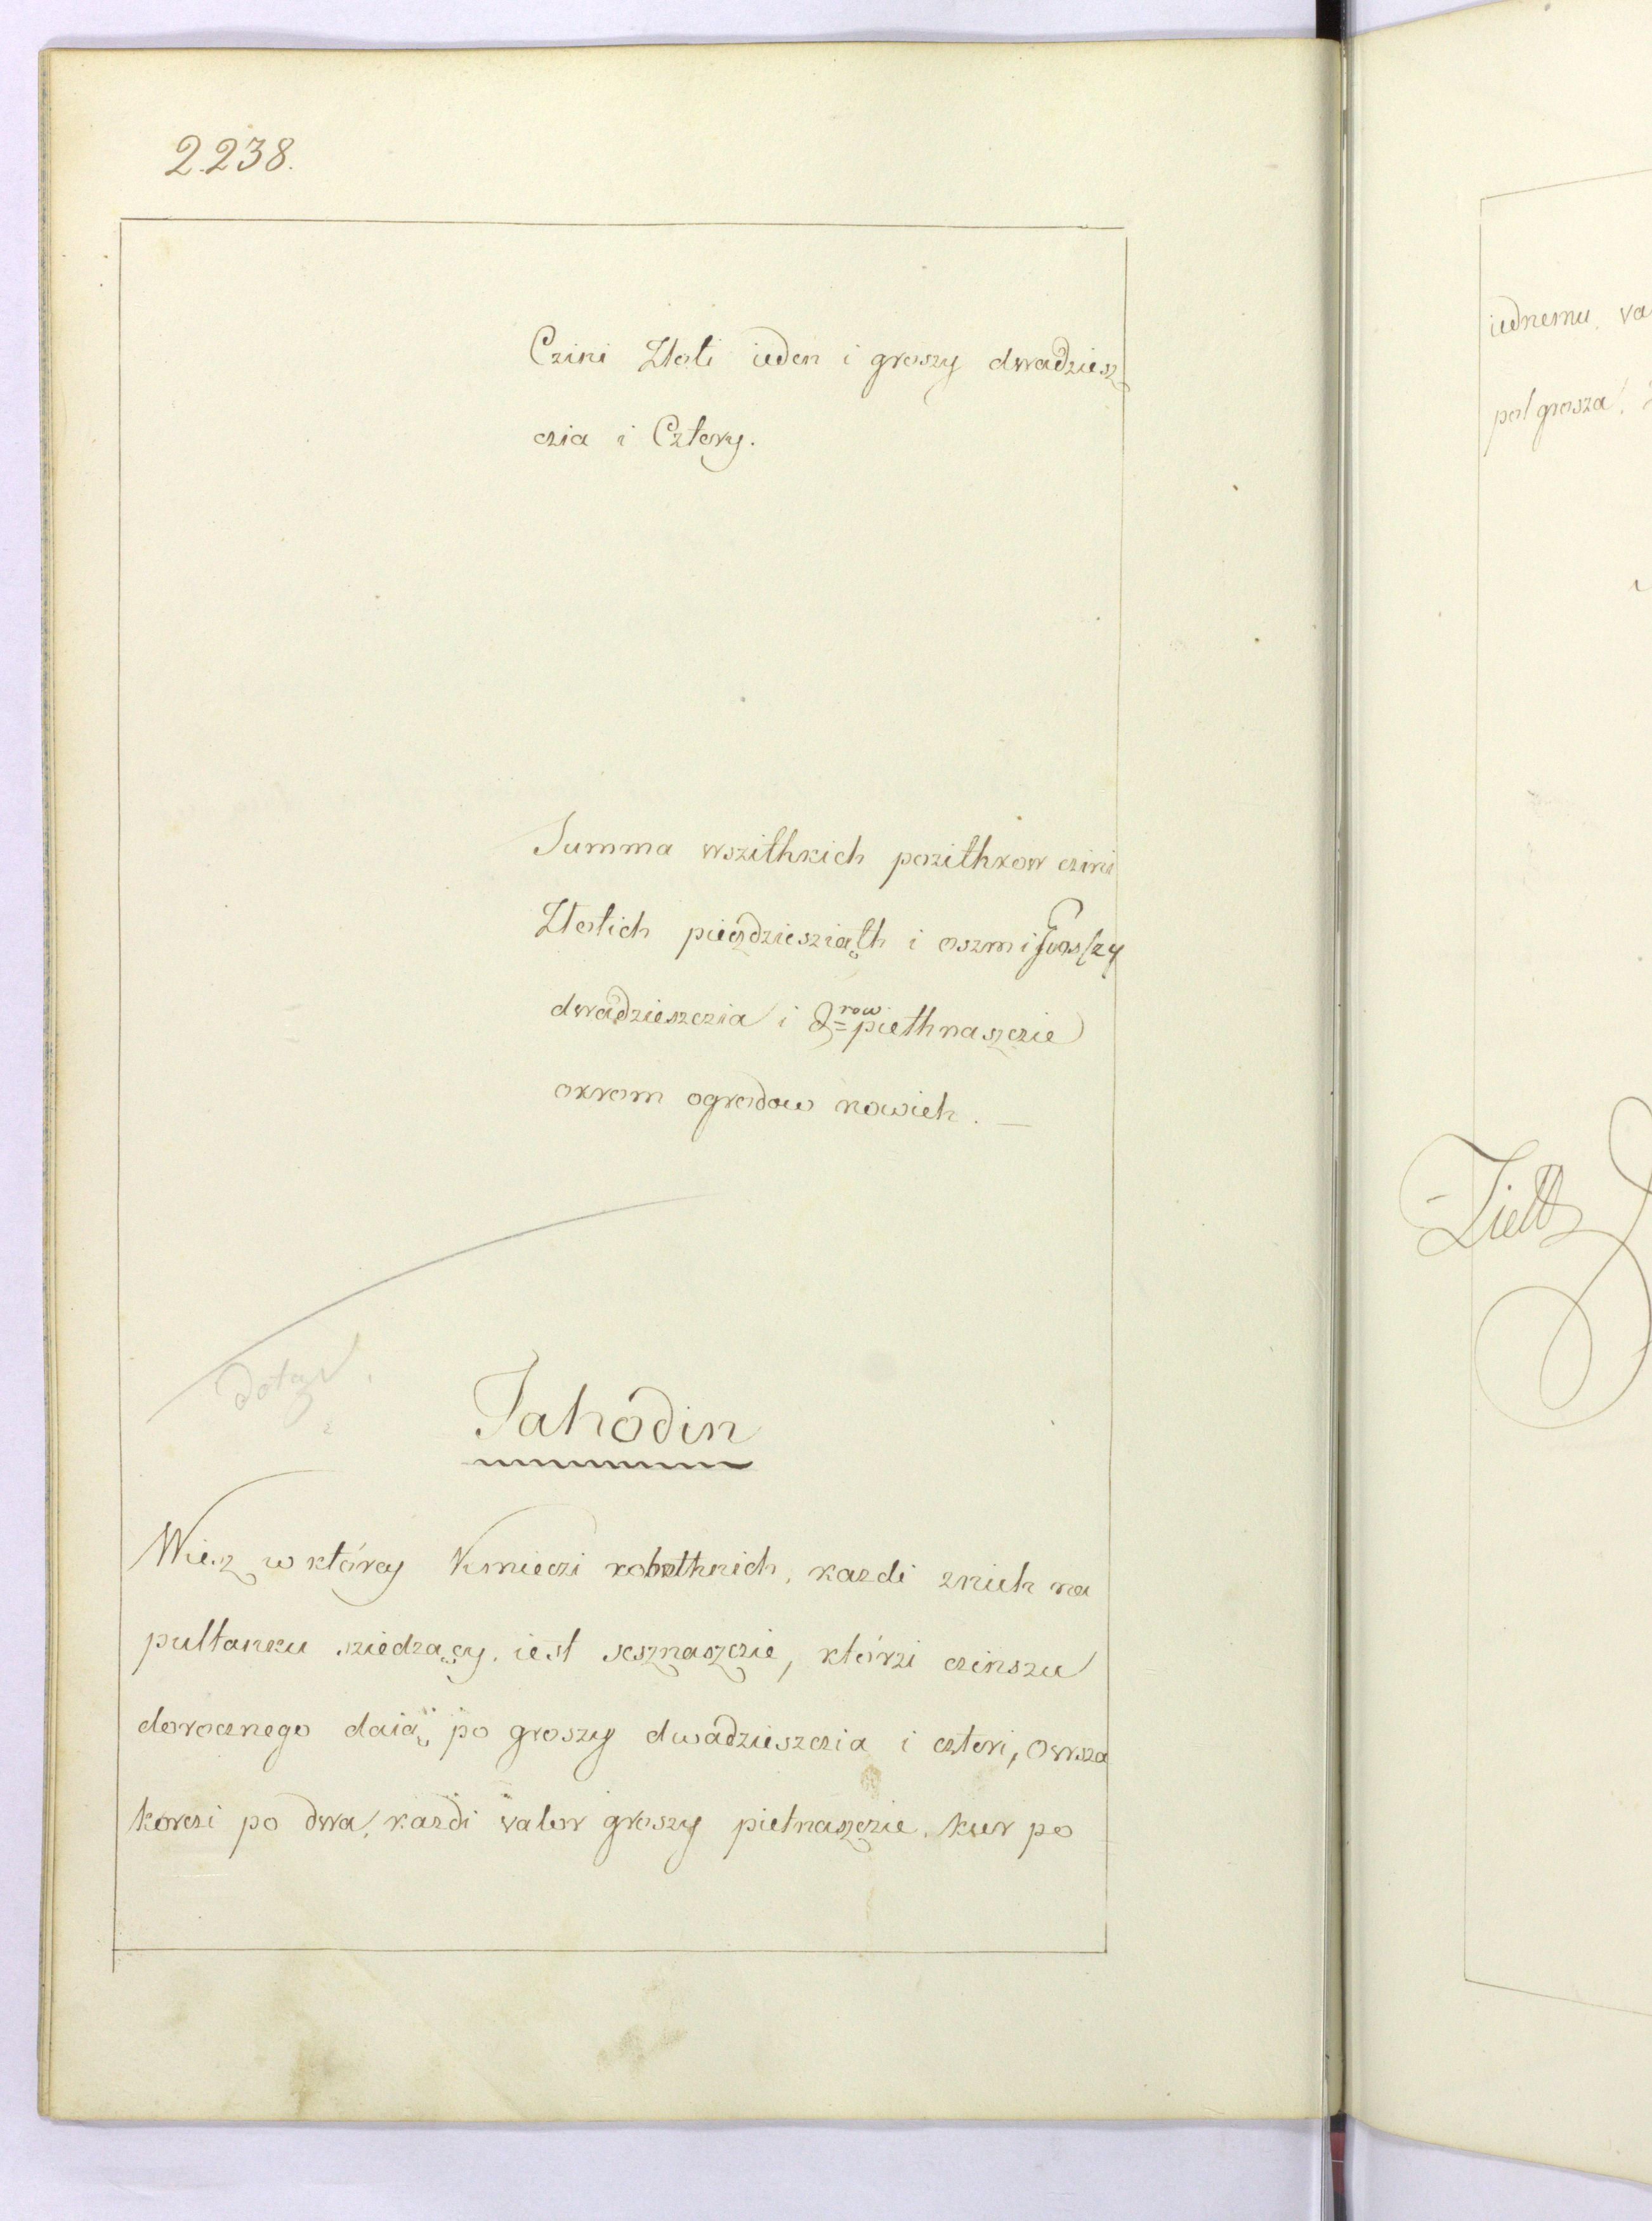 2.238.
Czini Złoti ieden i groszy dwadziesz
czia i Cztery.
Summa wszithkich pozithkow czini
Złotich piędziesziąth i oszm i Groszy
dwadzieszczia i d=row piethnaszczie
okrom ogrodow nowich. —
dotąd.
Jahodin
Wiesz w którey Kmieczi robothnich, kazdi znich na
pułłanku sziedzący, iest sesznaszczie, którzi czinszu
dorocznego daią po groszy dwadzieszczia i czteri, owsza
korczi po dwa, kazdi valor groszy pietnaszczie. kur po
iednemu, va
poł grosza,